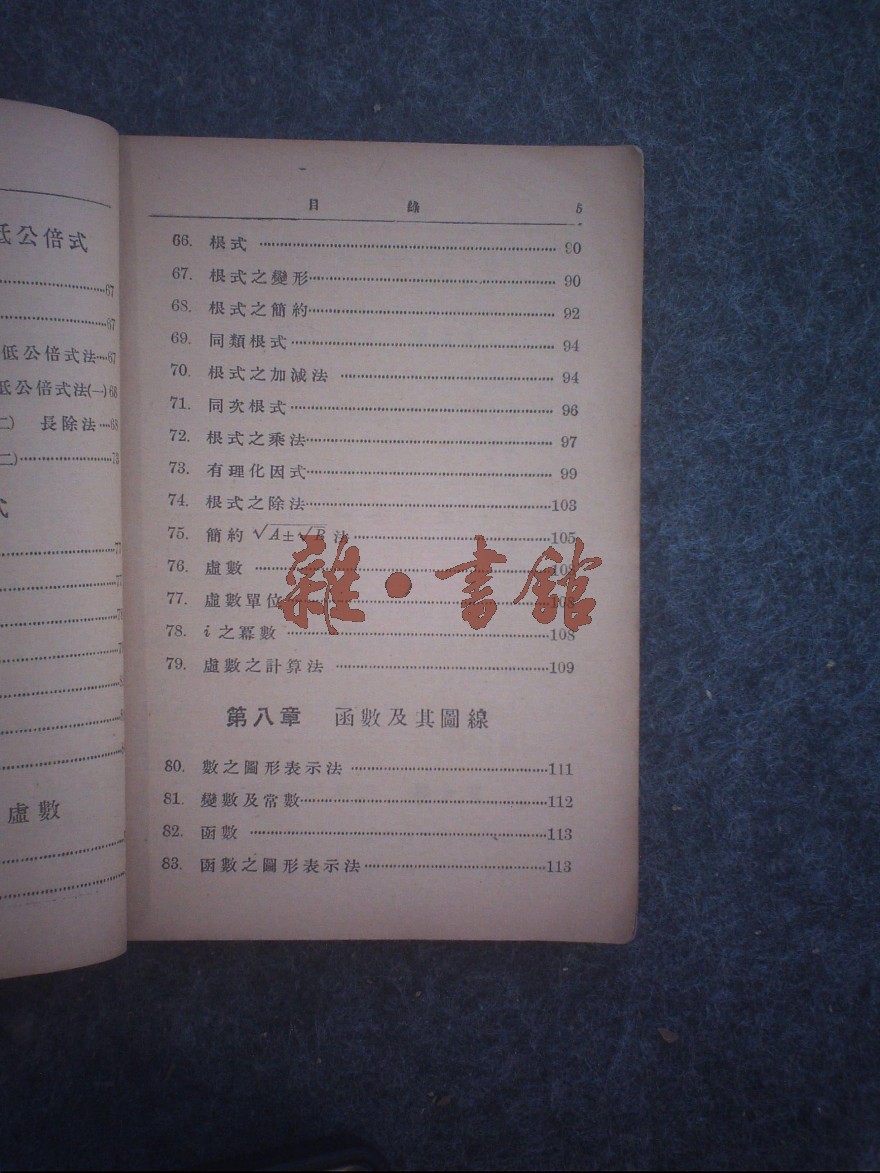 低公倍式
67
67
低公倍式法…67
低公倍式法(一)68
長除法…68
73
式
77
77
虛數
目 錄 5
66. 根式 …… 90
67. 根式之變形…… 90
68. 根式之簡約…… 92
69. 同類根式…… 94
70. 根式之加減法 …… 94
71. 同次根式…… 96
72. 根式之乘法…… 97
73. 有理化因式…… 99
74. 根式之除法……103
75. 簡約 √A±√B 法……105
76. 虛數 ……108
77. 虛數單位……108
78. i 之冪數 ……108
79. 虛數之計算法 ……109
第八章 函數及其圖線
80. 數之圖形表示法 ……111
81. 變數及常數……112
82. 函數 ……113
83. 函數之圖形表示法……113
雜·書館